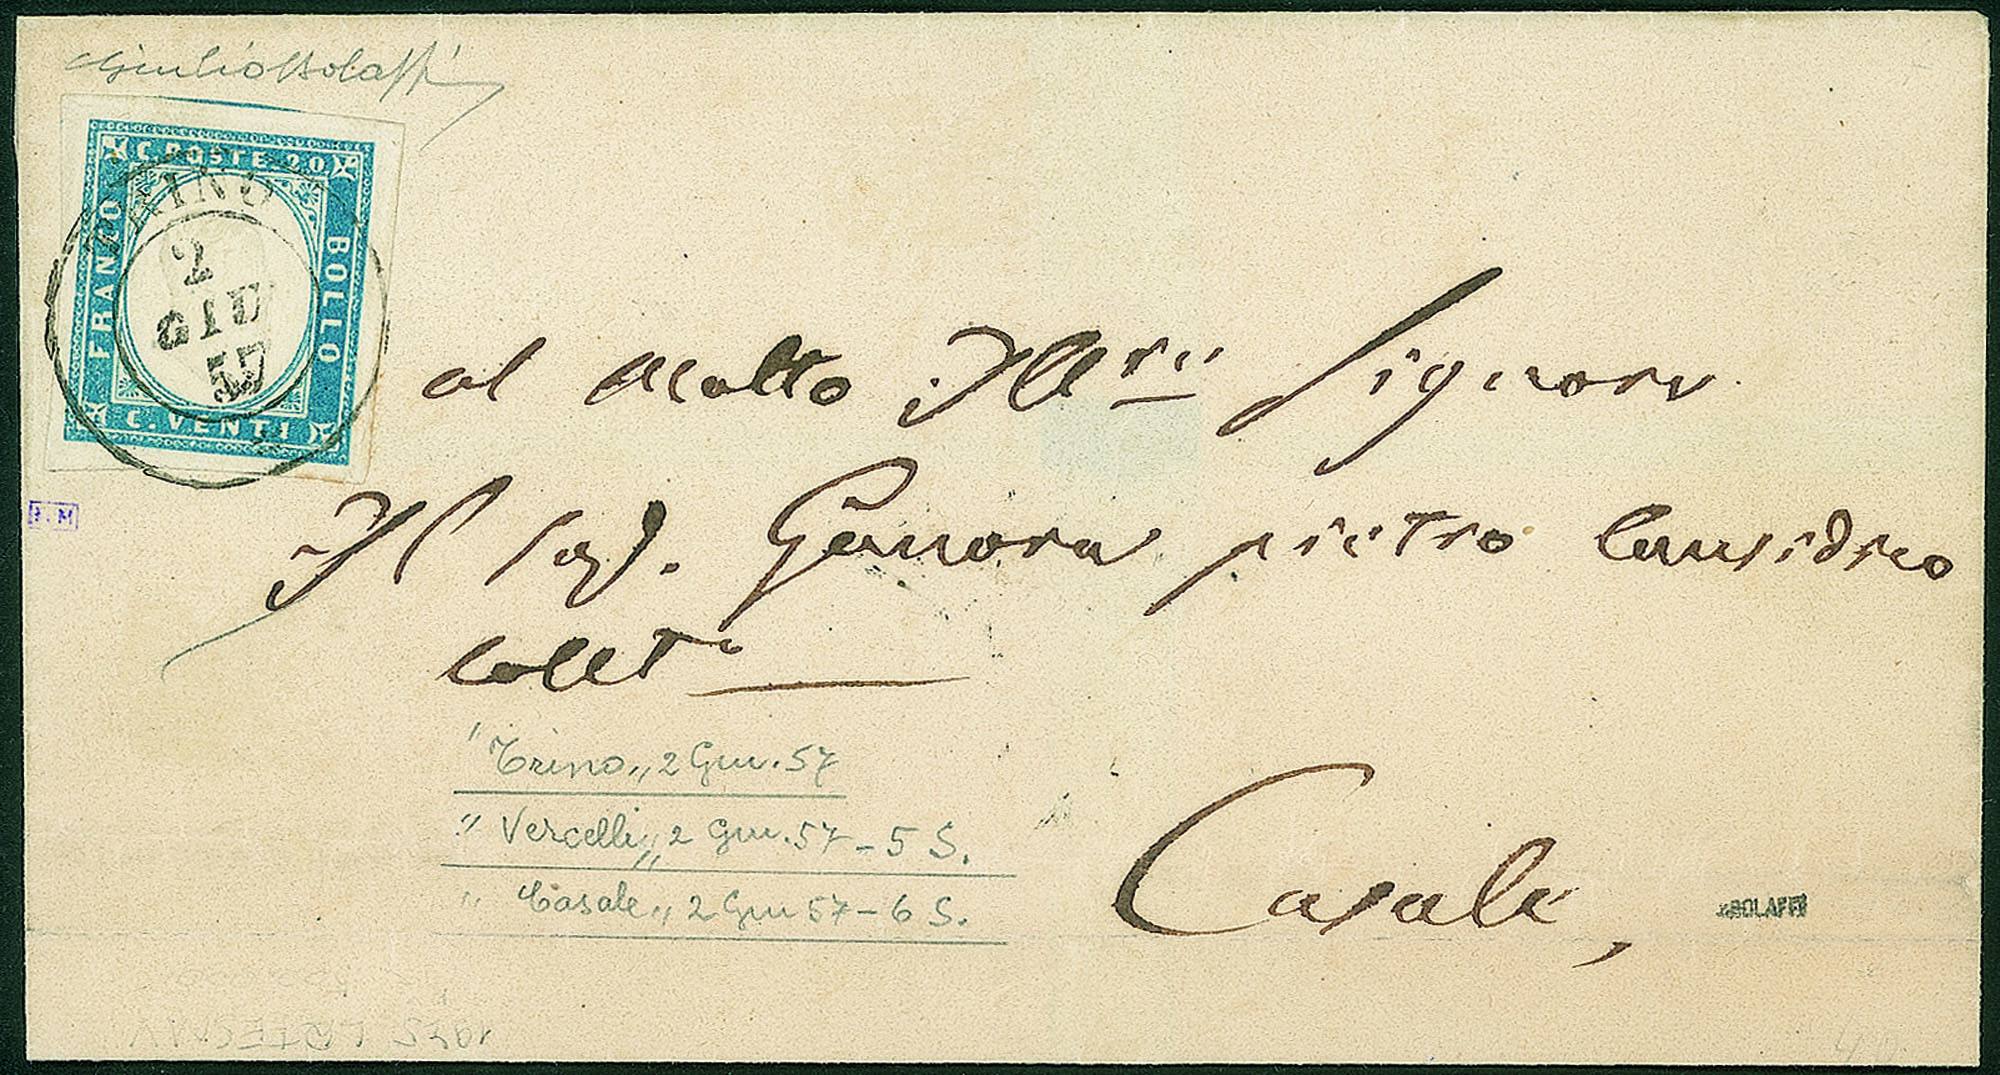 Giulio Bolaffi
C. POSTE 20
FRANCO
BOLLO
C. VENTI
TRINO
2
GIU
57
al Molto Ill.re Signore
Il Sig. Genova pietro Causidico
Collet.o
"Trino" 2 Giu. 57
"Vercelli" 2 Giu. 57 - 5 S.
"Casale" 2 Giu 57 - 6 S.
Casale,
BOLAFFI